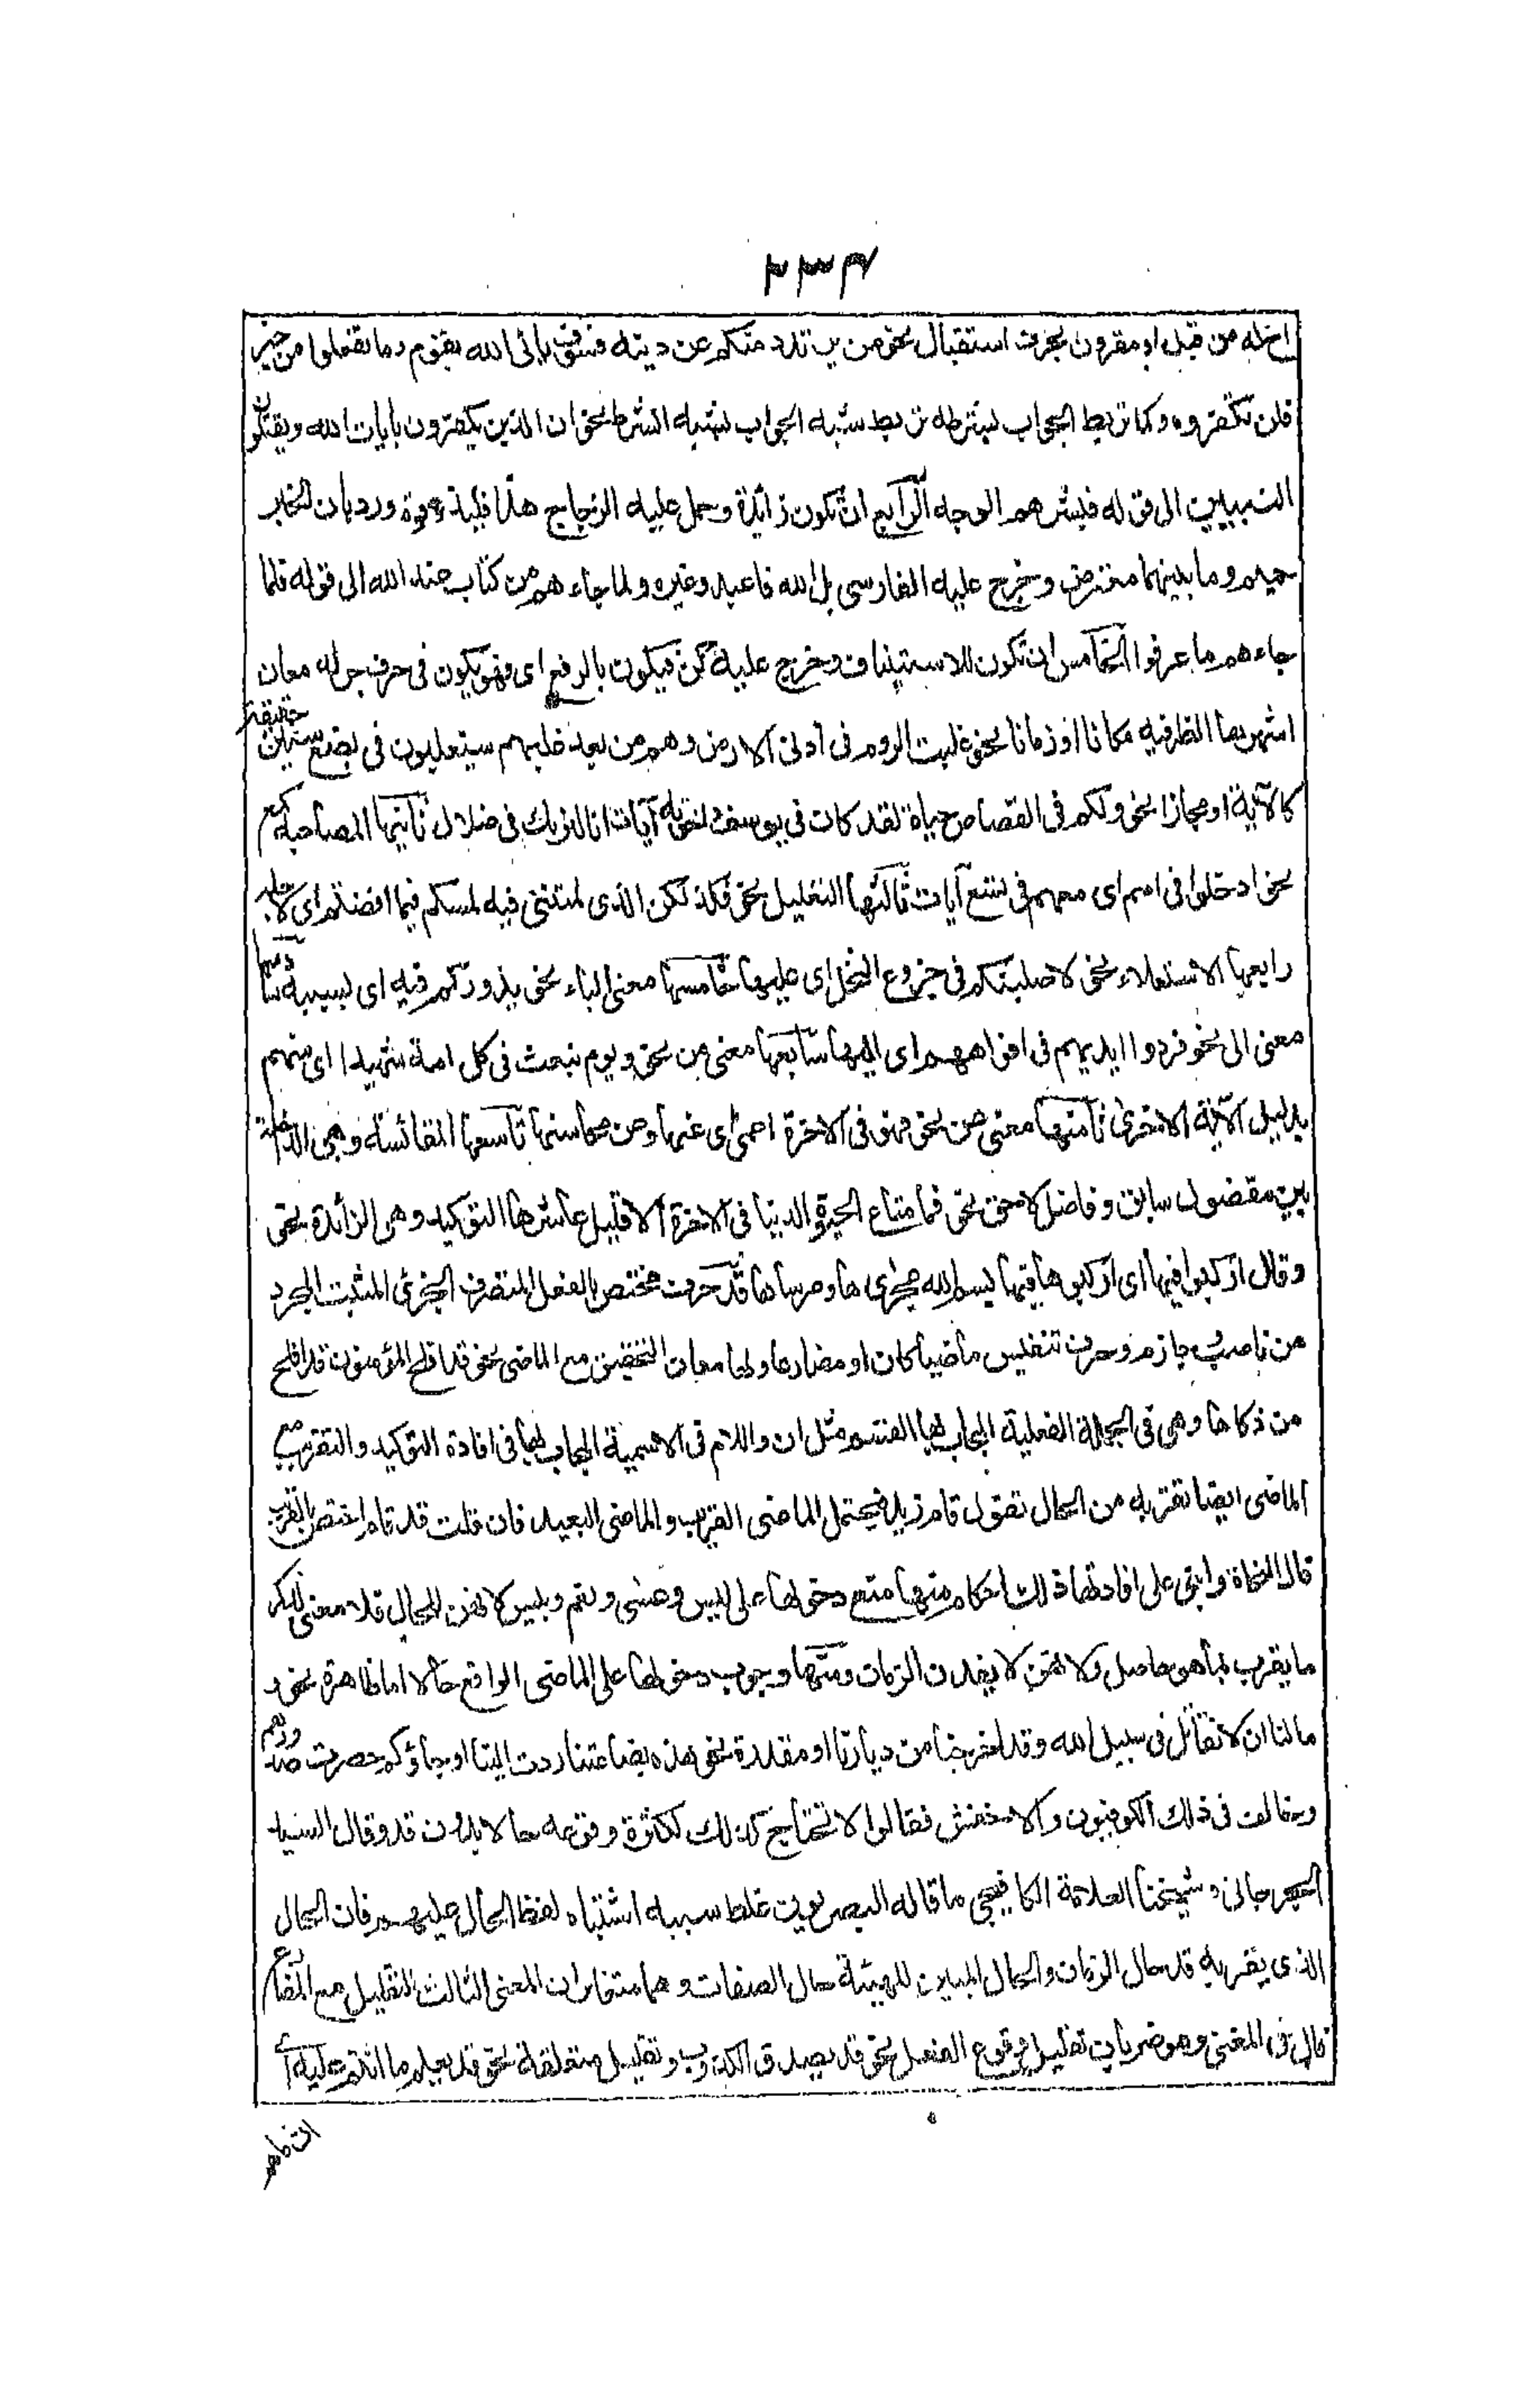 ٢٣٤
اخ له من قبل او مقرون بحرف استقبال نحو من يرتدد منكم عن دينه فسوف يأتى الله بقوم وما تفعلوا من خير
فلن تكفروه وكما تربط الجواب بشرطه تربط شبه الجواب بشبه الشرط نحو ان الذين يكفرون بآيات الله ويقتلون
النبيين الى قوله فبشرهم الوجه الرابع ان تكون زائدة وحمل عليه الزجاج هذا فليذوقوه ورد بان الخبر
حميم وما بينهما معترض وخرج عليه الفارسى بل الله فاعبد وغيره ولما جاءهم من كتاب عند الله الى قوله فلما
جاءهم ما عرفوا الخامس ان تكون للاستيناف وخرج عليه كن فيكون بالرفع اى فهو يكون فى حرف جر له معان
اشهرها الظرفية مكانا او زمانا نحو غلبت الروم فى أدنى الارض وهم من بعد غلبهم سيغلبون فى بضع سنين حقيقة
كالآية او مجازا نحو ولكم فى القصاص حياة لقد كان فى يوسف واخوته آيات انا لنراك فى ضلال ثانيها المصاحبة كمع
نحو ادخلوا فى امم اى معهم فى تسع آيات ثالثها التعليل نحو فذلكن الذى لمتننى فيه لمسكم فيما افضتم اى لاجله
رابعها الاستعلاء نحو لاصلبنكم فى جذوع النخل اى عليها خامسها معنى الباء نحو يذرؤكم فيه اى بسببه سادسها
معنى الى نحو فردوا ايديهم فى افواههم اى اليها سابعها معنى من نحو ويوم نبعث فى كل امة شهيدا اى منهم
بدليل الآية الاخرى ثامنها معنى عن نحو فهو فى الآخرة اعمى اى عنها وعن محاسنها تاسعها المقائسة وهى الداخلة
بين مفضول سابق وفاضل لاحق نحو فما متاع الحيوة الدنيا فى الآخرة الا قليل عاشرها التوكيد وهى الزائدة نحو
وقال اركبوا فيها اى اركبوها فيها بسم الله مجرىها ومرساها قد حرف مختص بالفعل المتصرف الخبرى المثبت المجرد
من ناصب وجازم وحرف تنفيس ماضيا كان او مضارعا ولها معان التحقيق مع الماضى نحو قد افلح المؤمنون قد افلح
من زكاها وهى فى الجملة الفعلية المجاب بها القسم مثل ان واللام فى الاسمية المجاب بها فى افادة التوكيد والتقريب مع
الماضى ايضا تقربه من الحال تقول قام زيد فيحتمل الماضى القريب والماضى البعيد فان قلت قد قام اختص بالقريب
قال النحاة وانبنى على افادتها ذلك احكام منها منع دخولها على ليس وعسى ونعم وبئس لانهن للحال فلا معنى لذكر
ما يقرب ما هو حاصل ولانهن لا يفدن الزمان ومنها وجوب دخولها على الماضى الواقع حالا اما ظاهرة نحو و
ما لنا ان لا نقاتل فى سبيل الله وقد اخرجنا من ديارنا او مقدرة نحو هذه بضاعتنا ردت الينا او جاؤكم حصرت صدورهم
وخالف فى ذلك الكوفيون والاخفش فقالوا لا تحتاج كذلك لكثرة وقوعه حالا بدون قد وقال السيد
الجرجانى وشيخنا العلامة الكافيجى ما قاله البصريون غلط سببه اشتباه لفظ الحال عليهم فان الحال
الذى يقربه قد حال الزمان والحال المبين للهيئة حال الصفات وهما متغايران المعنى الثالث التقليل مع المضارع
قال فى المغنى وهو ضربان تقليل وقوع الفعل نحو قد يصدق الكذوب وتقليل متعلقه نحو قد يعلم ما انتم عليه اى
ان ما هم